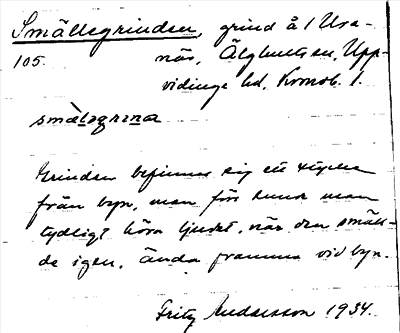 Smällegrinden, grind å 1 Ura-
105. näs, Älghults sn, Upp-
vidinge hd, Kronob. l.
smälagrena
Grinden befinner sig ett stycke
från byn, men förr kunde man
tydligt höra ljudet, när den smäll-
de igen, ända framme vid byn.
Fritz Andersson 1934.